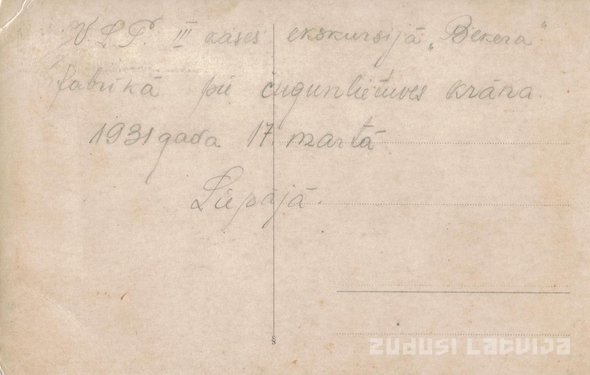 V.L.P. III kases ekskursijā „Bekera"
fabrikā pie čugunlietuves krāna
1931 gada 17. martā
Liepājā.
zudusi Latvija